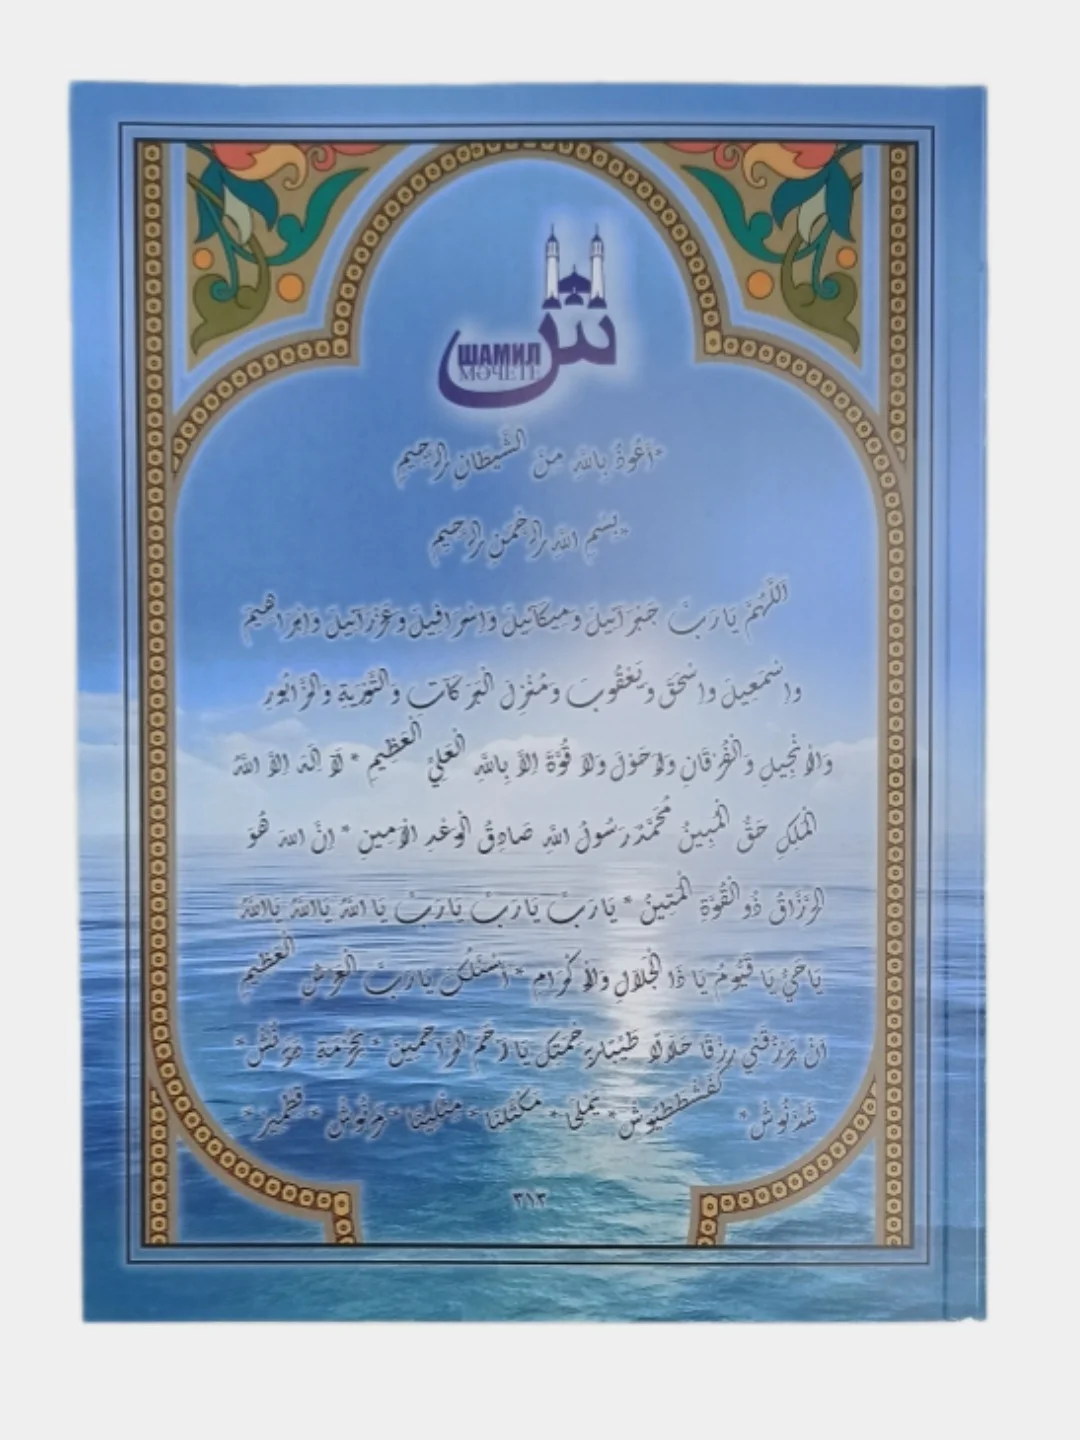 ШАМИЛ
МӘЧЕТЕ
*اَعُوذُ بِاللهِ مِنَ الشَّيْطَانِ الرَّجِيمِ
*بِسْمِ اللهِ الرَّحْمَنِ الرَّحِيمِ
اَللَّهُمَّ يَا رَبَّ جَبْرَآئِيلَ وَمِيكَآئِيلَ وَاِسْرَافِيلَ وَعَزْرَآئِيلَ وَاِبْرَاهِيمَ
وَاِسْمَعِيلَ وَاِسْحَقَ وَيَعْقُوبَ وَمُنْزِلَ الْبَرَكَاتِ وَالتَّوْرَيةِ وَالزَّبُورِ
وَالْاِنْجِيلِ وَالْفُرْقَانِ وَلاَحَوْلَ وَلاَ قُوَّةَ اِلاَّ بِاللهِ الْعَلِيِّ الْعَظِيمِ * لَآ اِلَهَ اِلاَّ اللهُ
الْمَلِكِ حَقُّ الْمُبِينُ مُحَمَّدٌ رَسُولُ اللهِ صَادِقُ الْوَعْدِ الْاَمِينِ * اِنَّ اللهَ هُوَ
الرَّزَّاقُ ذُو الْقُوَّةِ الْمَتِينُ * يَا رَبَّ يَا رَبَّ يَارَبَّ يَا اَللهُ يَااَللهُ يَااَللهُ
يَا حَيُّ يَا قَيُّومُ يَا ذَا الْجَلَالِ وَالْاِكْرَامِ * اَسْئَلُكَ يَارَبَّ الْعَرْشِ الْعَظِيمِ
اَنْ تَرْزُقَنِي رِزْقًا حَلَالًا طَيِّبًا بِرَحْمَتِكَ يَا اَرْحَمَ الرَّاحِمِينَ * بِحُرْمَةِ مَرْنُشْ*
شَدَنُوشْ* كَفَشْطَطِيُوشْ* يَمْلِيخَا* مَكْثَلِينَا* مِثْلِينَا* مَرْنُوشْ* قِطْمِيرْ*
٣١٣